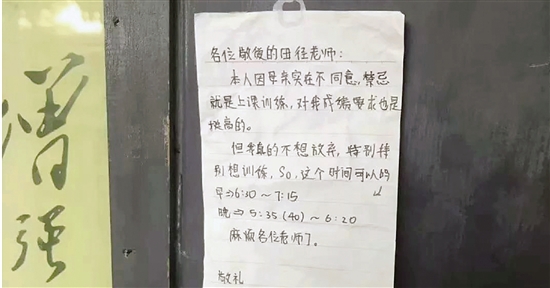 增
强
各位敬爱的田径老师:
本人因母亲实在不同意,禁忌
就是上课训练,对我成绩要求也是
挺高的。
但我真的不想放弃,特别特
别想训练,So,这个时间可以的
早⇒6:30～7:15
晚⇒5:35(40)～6:20
麻烦各位老师了。
敬礼